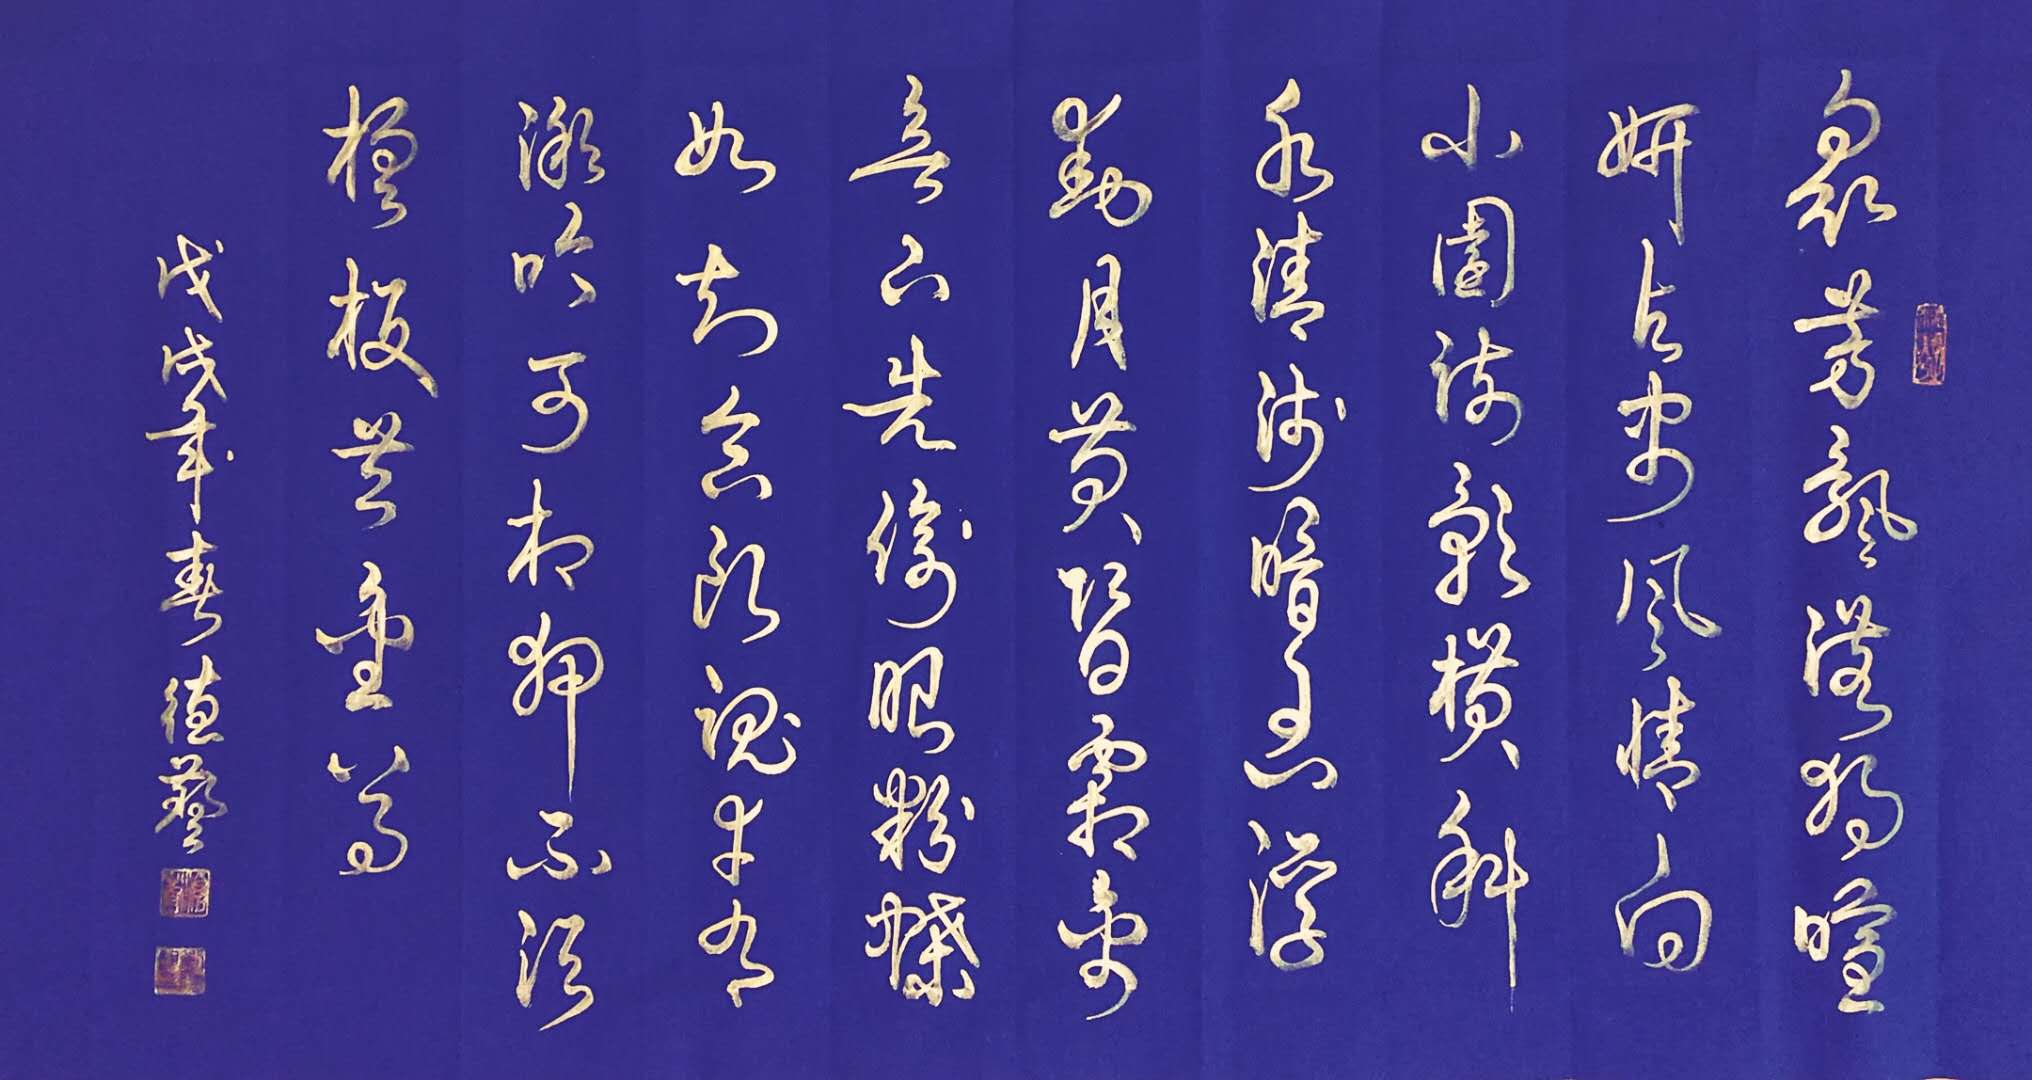 衆芳飄落獨暄
妍占尽風情向
小園疎影横斜
水清淺暗香浮
動月黄昏霜禽
欲下先偷眼粉蝶
如知合断魂幸有
微吟可相狎不須
檀板共金尊
戊戌年春德藝